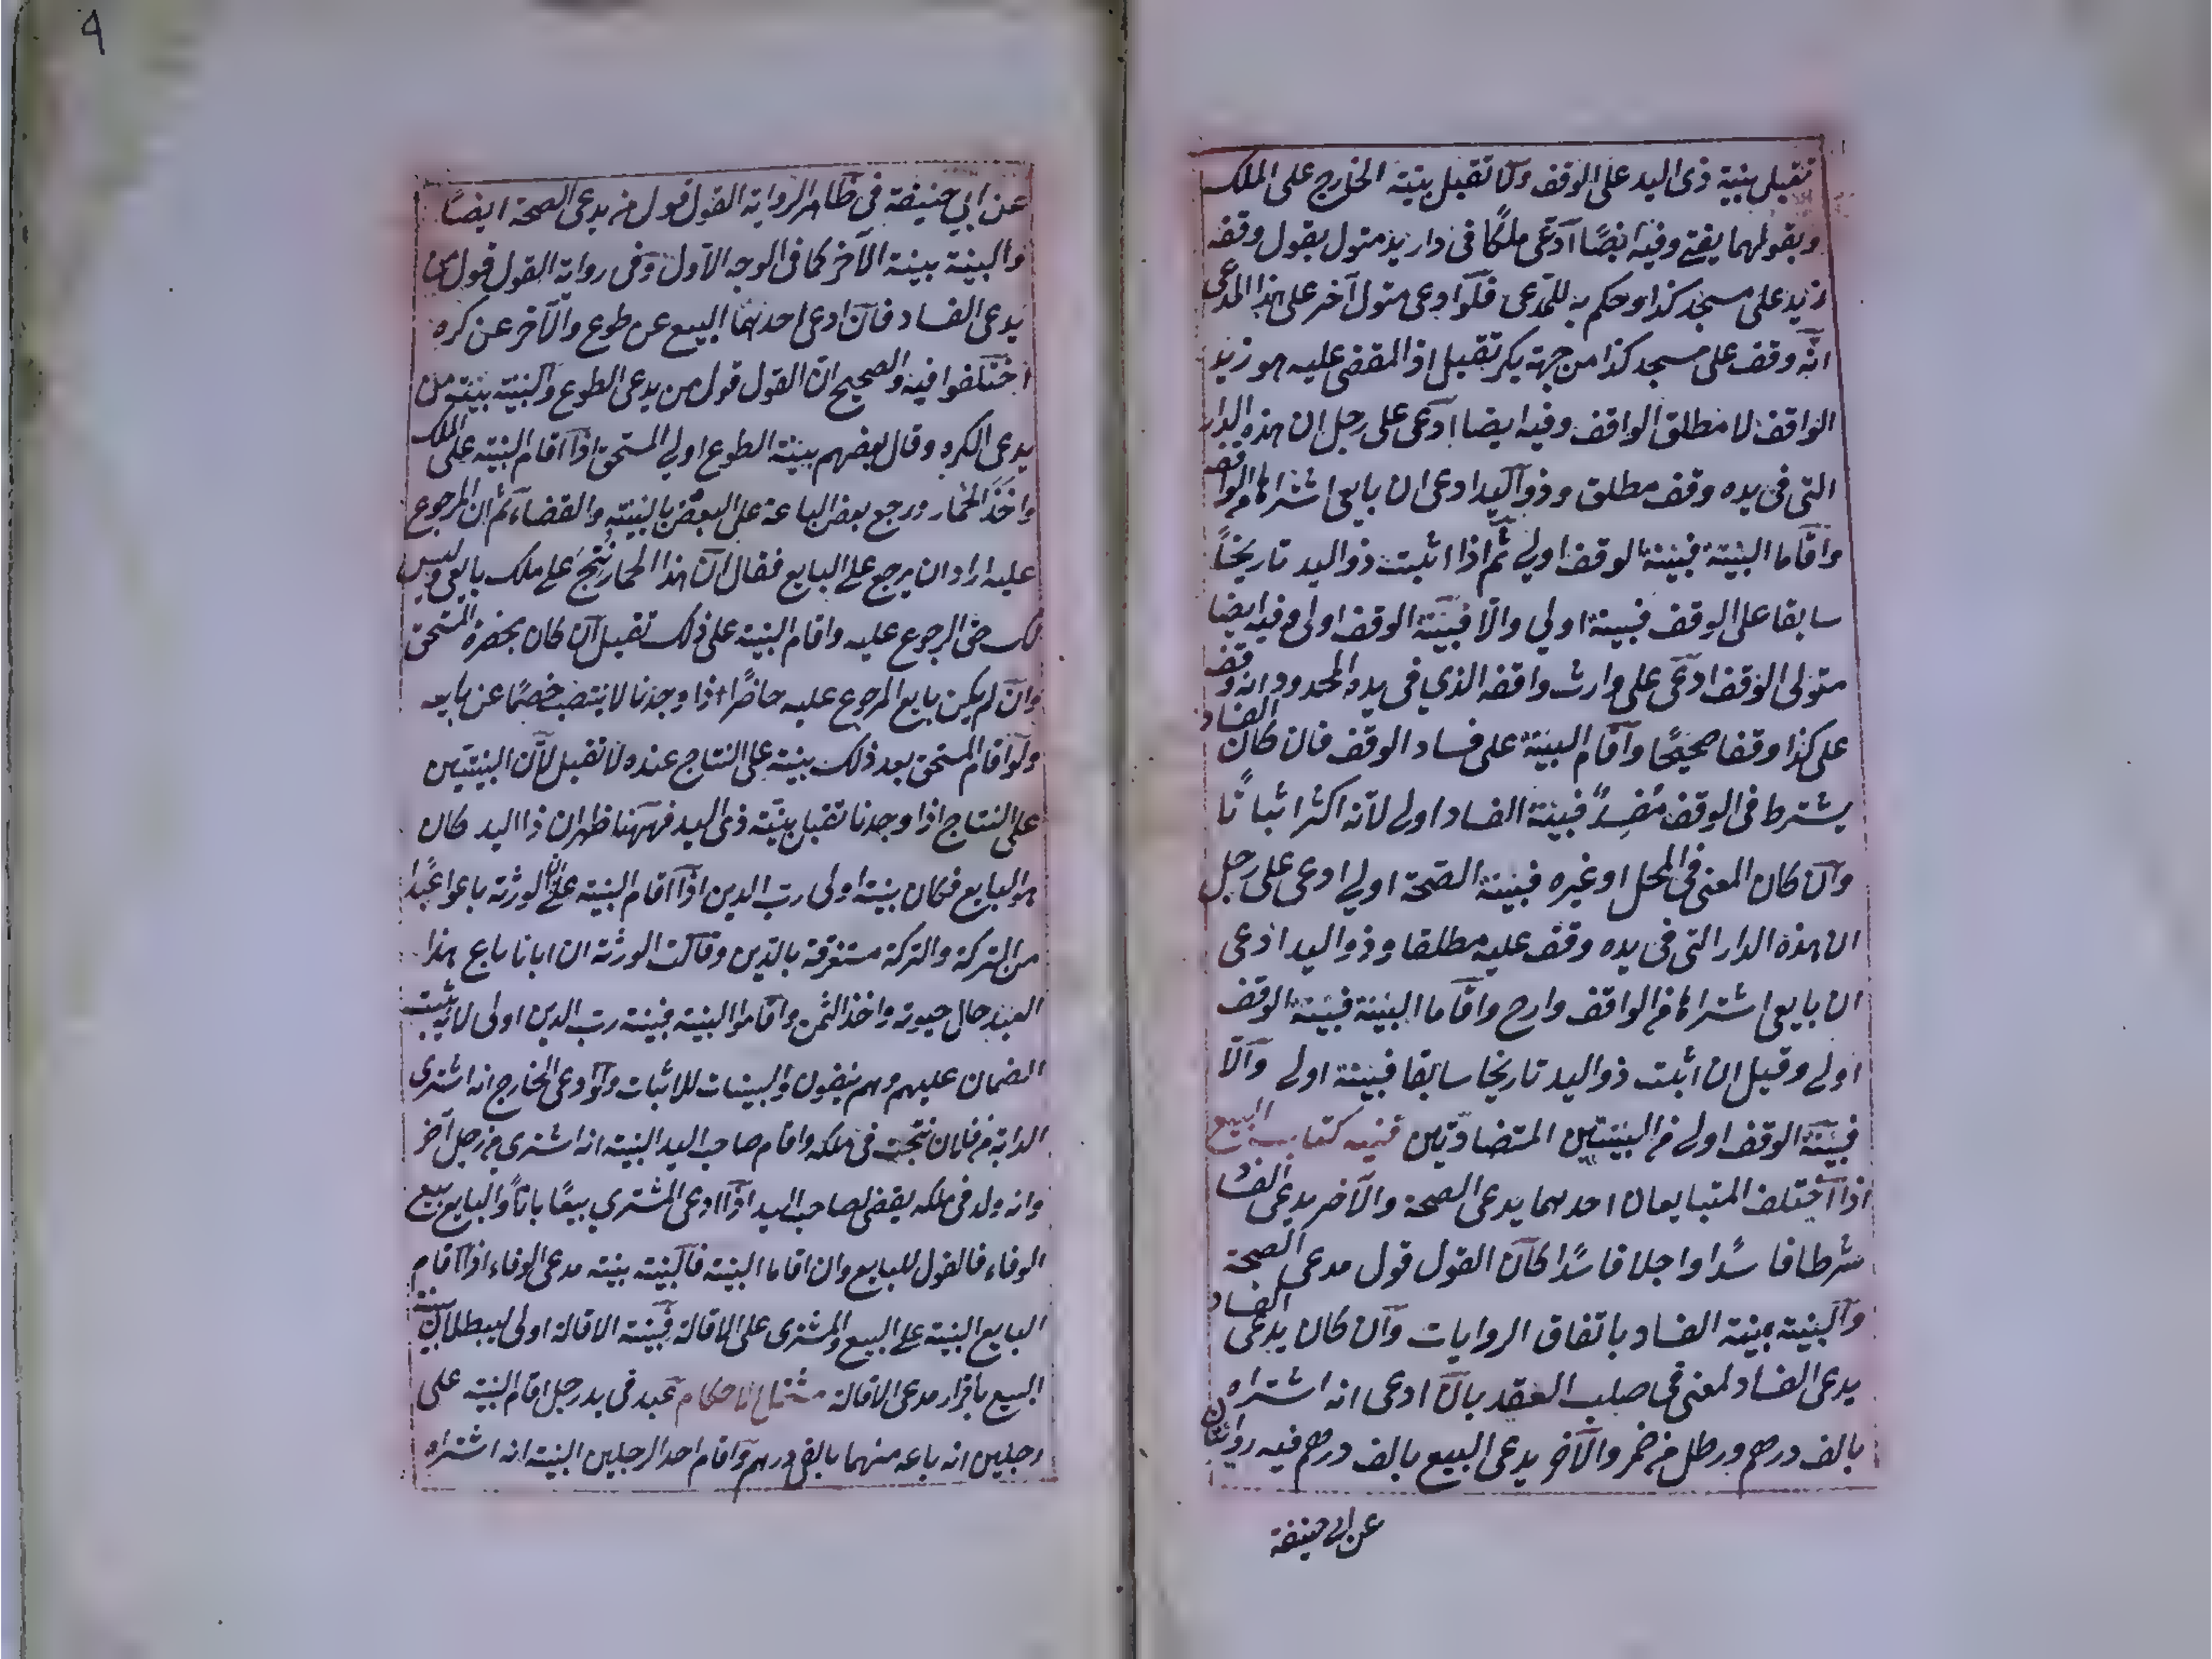 تقبل بينة ذى اليد على الوقف ولا تقبل بينة الخارج على الملك
وبقولهما يفتى وفيه ايضًا ادّعى ملكًا فى دار يد متول يقول وقفه
زيد على مسجد كذا وحكم به للمدعى فلو ادعى متول آخر على هذا المدعى
انه وقف على مسجد كذا من جهة بكر تقبل اذ المقضى عليه هو زيد
الواقف لا مطلق الواقف وفيه ايضا ادّعى على رجل ان هذه الدار
التى فى يده وقف مطلق وذو اليد ادعى ان بايعى اشتراها من الواقف
واقاما البينة فبينة الوقف اولى ثم اذا اثبت ذو اليد تاريخًا
سابقا على الوقف فبينة اولي والا فبينة الوقف اولى وفيه ايضا
متولى الوقف ادعى على وارث واقفه الذي فى يده المحدود انه وقف
على كذا وقفا صحيحًا واقام البينة على فساد الوقف فان كان الفساد
بشرط فى الوقف مُفسِدٍ فبينة الفساد اولى لانه اكثر اثباتًا
وان كان المعنى فى المحل او غيره فبينة الصحة اولي ادعى على رجل
ان هذه الدار التى فى يده وقف عليه مطلقا وذو اليد ادعى
ان بايعى اشتراها من الواقف وارح واقاما البينة فبينة الوقف
اولى وقيل ان اثبت ذو اليد تاريخا سابقا فبينة اولى والا
فبينة الوقف اولى من البينتين المتضادتين قنيه كتاب البيع
اذا اختلف المتبايعان احدهما يدعى الصحة والآخر يدعى الفساد
شرطا فاسدًا واجلا فاسدًا كان القول قول مدعى الصحة
والبينة بينة الفساد باتفاق الروايات وان كان يدعى الفساد
يدعى الفساد لمعنى فى صلب العقد بان ادعى انه اشتراه
بالف درهم ورطل من خمر والآخر يدعى البيع بالف درهم فيه روايتان
عن ابى حنيفة
عن ابي حنيفة في ظاهر الرواية القول قول من يدعى الصحة ايضًا
والبينة بينة الآخر كما فى الوجه الاول وفى رواية القول قول من
يدعى الفساد فان ادعى احدهما البيع عن طوع والآخر عن كره
اختلفوا فيه والصحيح ان القول قول من يدعى الطوع والبينة بينة من
يدعى الكره وقال بعضهم بينة الطوع اولى المستحق اذا اقام البينة على الملك
واخذ الحمار ورجع بعض الباعة على البعض بالبينة والقضاء ثم ان المرجوع
عليه اراد ان يرجع على البايع فقال ان هذا الحمار نتج على ملك بايعى وليس
لك حق الرجوع عليه واقام البينة على ذلك تقبل ان كان بحضرة المستحق
وان لم يكن بايع المرجوع عليه حاضرًا اذا وجدنا لا ينتصب خصمًا عن بايعه
ولو اقام المستحق بعد ذلك بينة على النتاج عنده لا تقبل لان البينتين
على النتاج اذا وجدنا تقبل بينة ذى اليد فههنا ظهر ان ذا اليد كان
هو البايع فكان بينة اولى رب الدين اذا اقام البينة على ان الورثة باعوا عبدًا
من التركة والتركة مستغرقة بالدين وقالت الورثة ان ابانا باع هذا
العبد حال حيوته واخذ الثمن واقاموا البينة فبينة رب الدين اولى لانه يثبت
الضمان عليهم وهم ينفون والبينات للاثبات ولو ادعى الخارج انه اشترى
الدابة من فلان نتجت فى ملكه واقام صاحب اليد البينة انه اشترى من رجل آخر
وانه ولد فى ملكه يقضى لصاحب اليد اذا ادعى المشتري بيعًا باتًا والبايع بيع
الوفاء فالقول للبايع وان اقاما البينة فالبينة بينة مدعى الوفاء اذا اقام
البايع البينة على البيع والمشترى على الاقالة فبينة الاقالة اولى لبطلان بينة
البيع باقرار مدعى الاقالة عبد فى يد رجل اقام البينة على
رجلين انه باعه منهما بالفى درهم واقام احد الرجلين البينة انه اشتراه